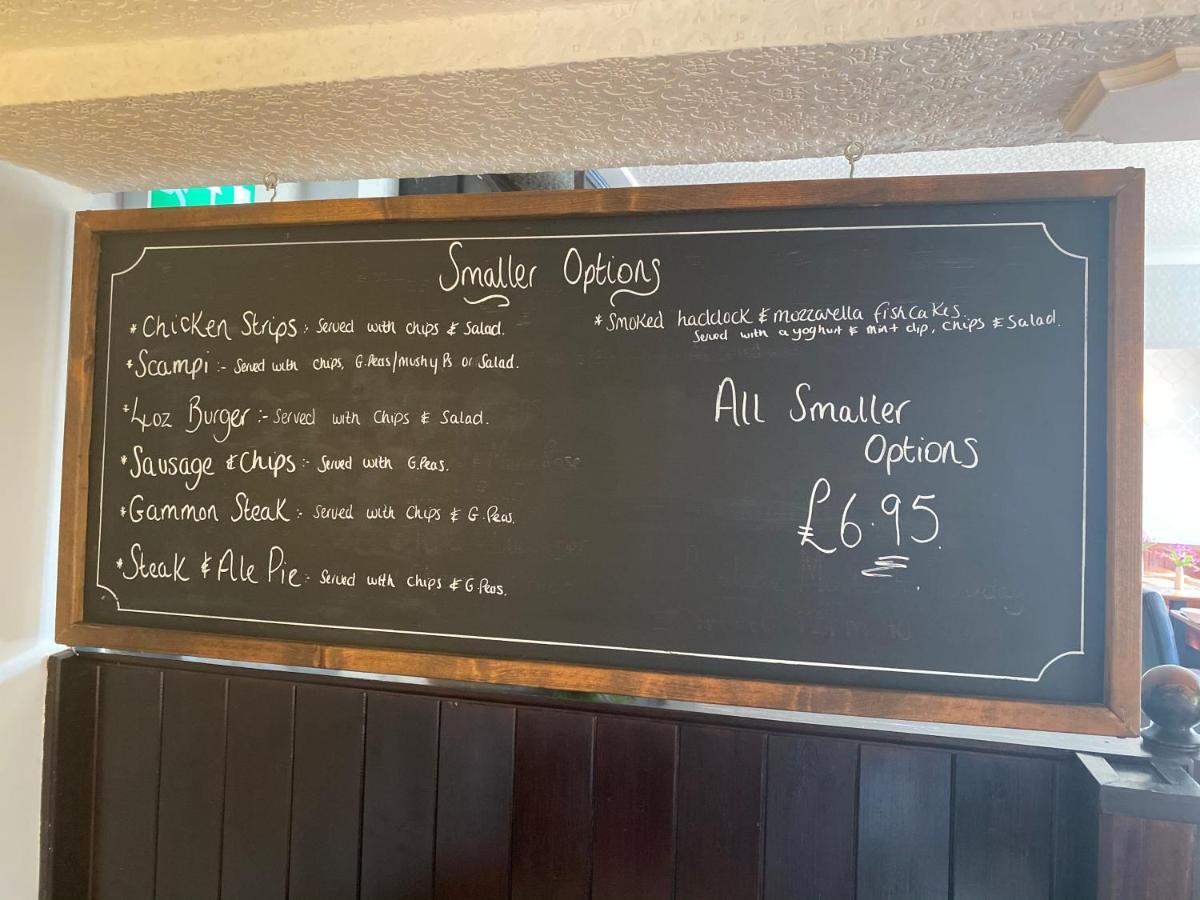 Smaller Options
* Chicken Strips :- Served with chips & Salad.
* Scampi :- Served with chips, G.Peas/mushy Ps or Salad.
* 4oz Burger :- Served with Chips & Salad.
* Sausage & Chips :- Served with G.Peas.
* Gammon Steak :- Served with Chips & G.Peas.
* Steak & Ale Pie :- Served with chips & G.Peas.
* Smoked haddock & mozzarella fishcakes.
Served with a yoghurt & mint dip, chips & Salad.
All Smaller
Options
£6.95.